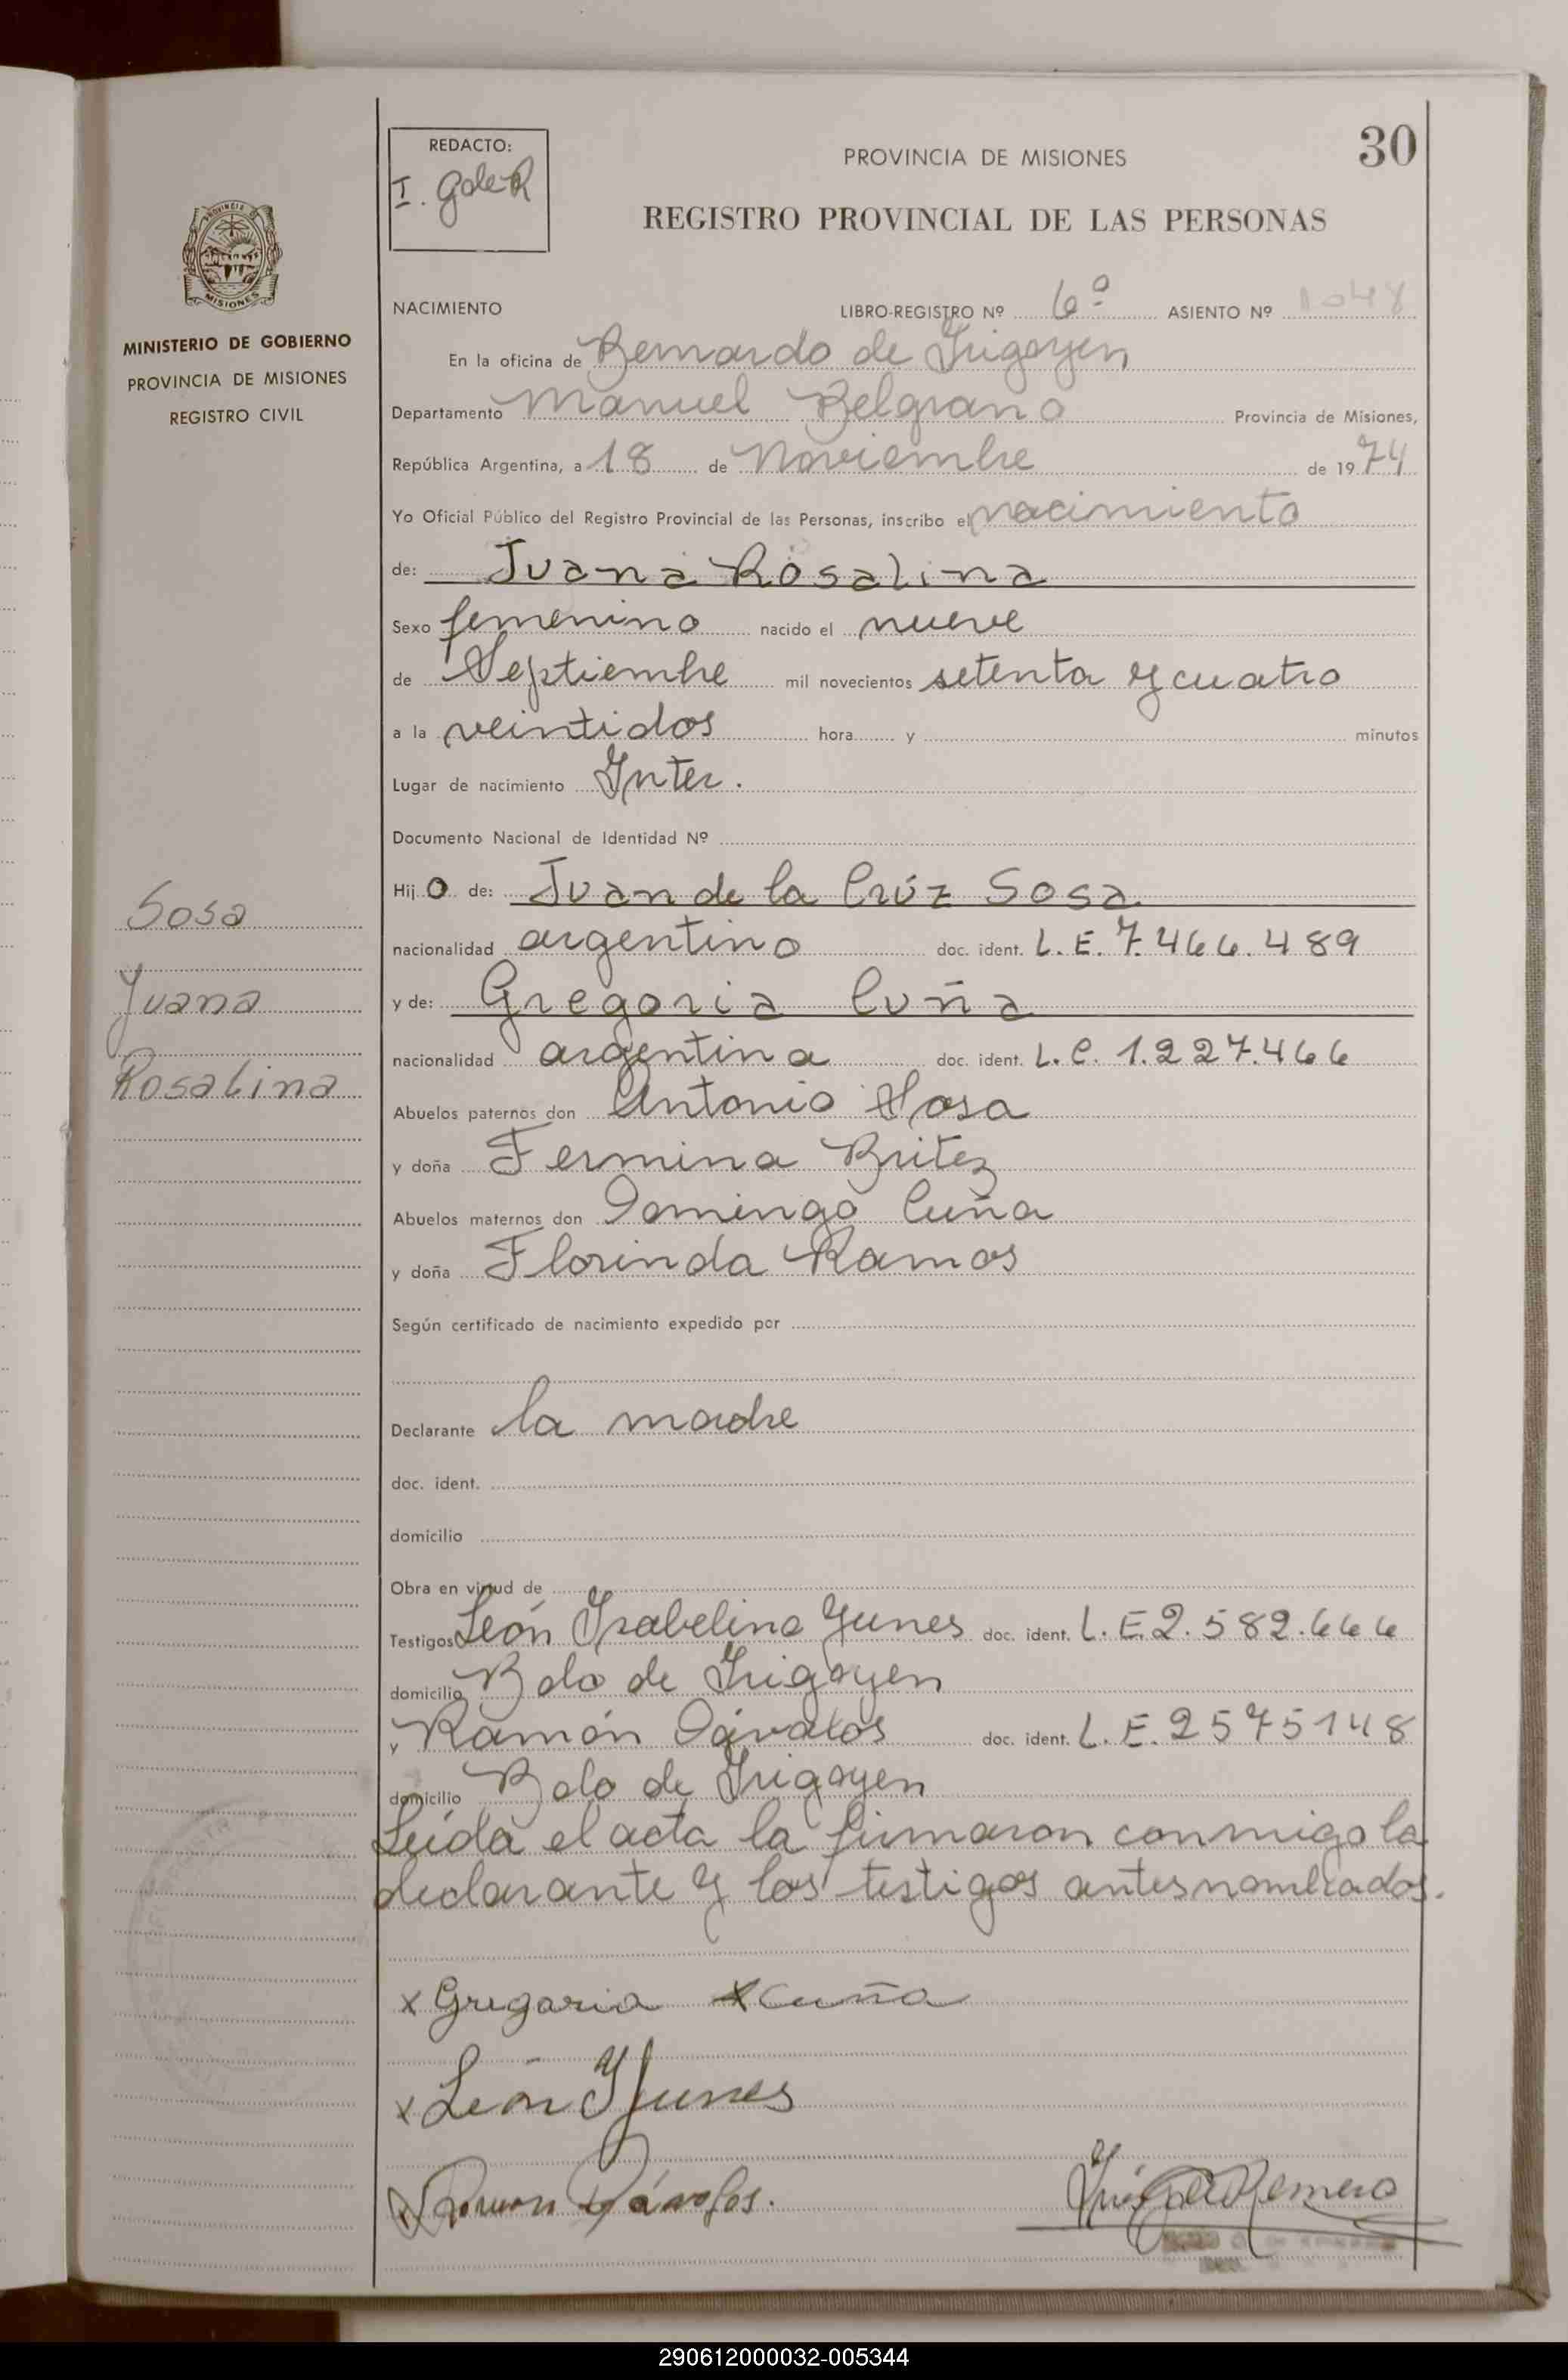 30
REDACTO:
PROVINCIA DE MISIONES
REGISTRO PROVINCIAL DE LAS PERSONAS
PROVINCIA DE
MISIONES
MINISTERIO DE GOBIERNO
PROVINCIA DE MISIONES
REGISTRO CIVIL
NACIMIENTO LIBRO-REGISTRO Nº 6º ASIENTO Nº 1048
En la oficina de Bernardo de Irigoyen
Departamento Manuel Belgrano Provincia de Misiones,
República Argentina, a 18 de Noviembre de 1974
Yo Oficial Público del Registro Provincial de las Personas, inscribo el nacimiento
de: Juana Rosalina
Sexo femenino nacido el nueve
de Septiembre mil novecientos setenta y cuatro
a la veintidos hora y minutos
Lugar de nacimiento Inter.
Documento Nacional de Identidad Nº
Hij o de: Juan de la Crúz Sosa
nacionalidad argentino doc. ident. L.E. 7.466.489
y de: Gregoria Cuña
nacionalidad argentina doc. ident. L.C. 1.227.466
Abuelos paternos don Antonio Sosa
y doña Fermina Britez
Abuelos maternos don Domingo Cuña
y doña Florinda Ramos
Según certificado de nacimiento expedido por
Declarante la madre
doc. ident.
domicilio
Obra en virtud de
Testigos León Isabelino Yunes doc. ident. L.E. 2.582.666
domicilio Bdo de Irigoyen
y Ramón Dávalos doc. ident. L.E. 2575148
domicilio Bdo de Irigoyen
Leída el acta la firmaron conmigo la
declarante y los testigos antes nombrados.
x Gregoria Cuña
x León I Yunes
Ramon Dávalos.
Romero
Sosa
Juana
Rosalina
290612000032-005344